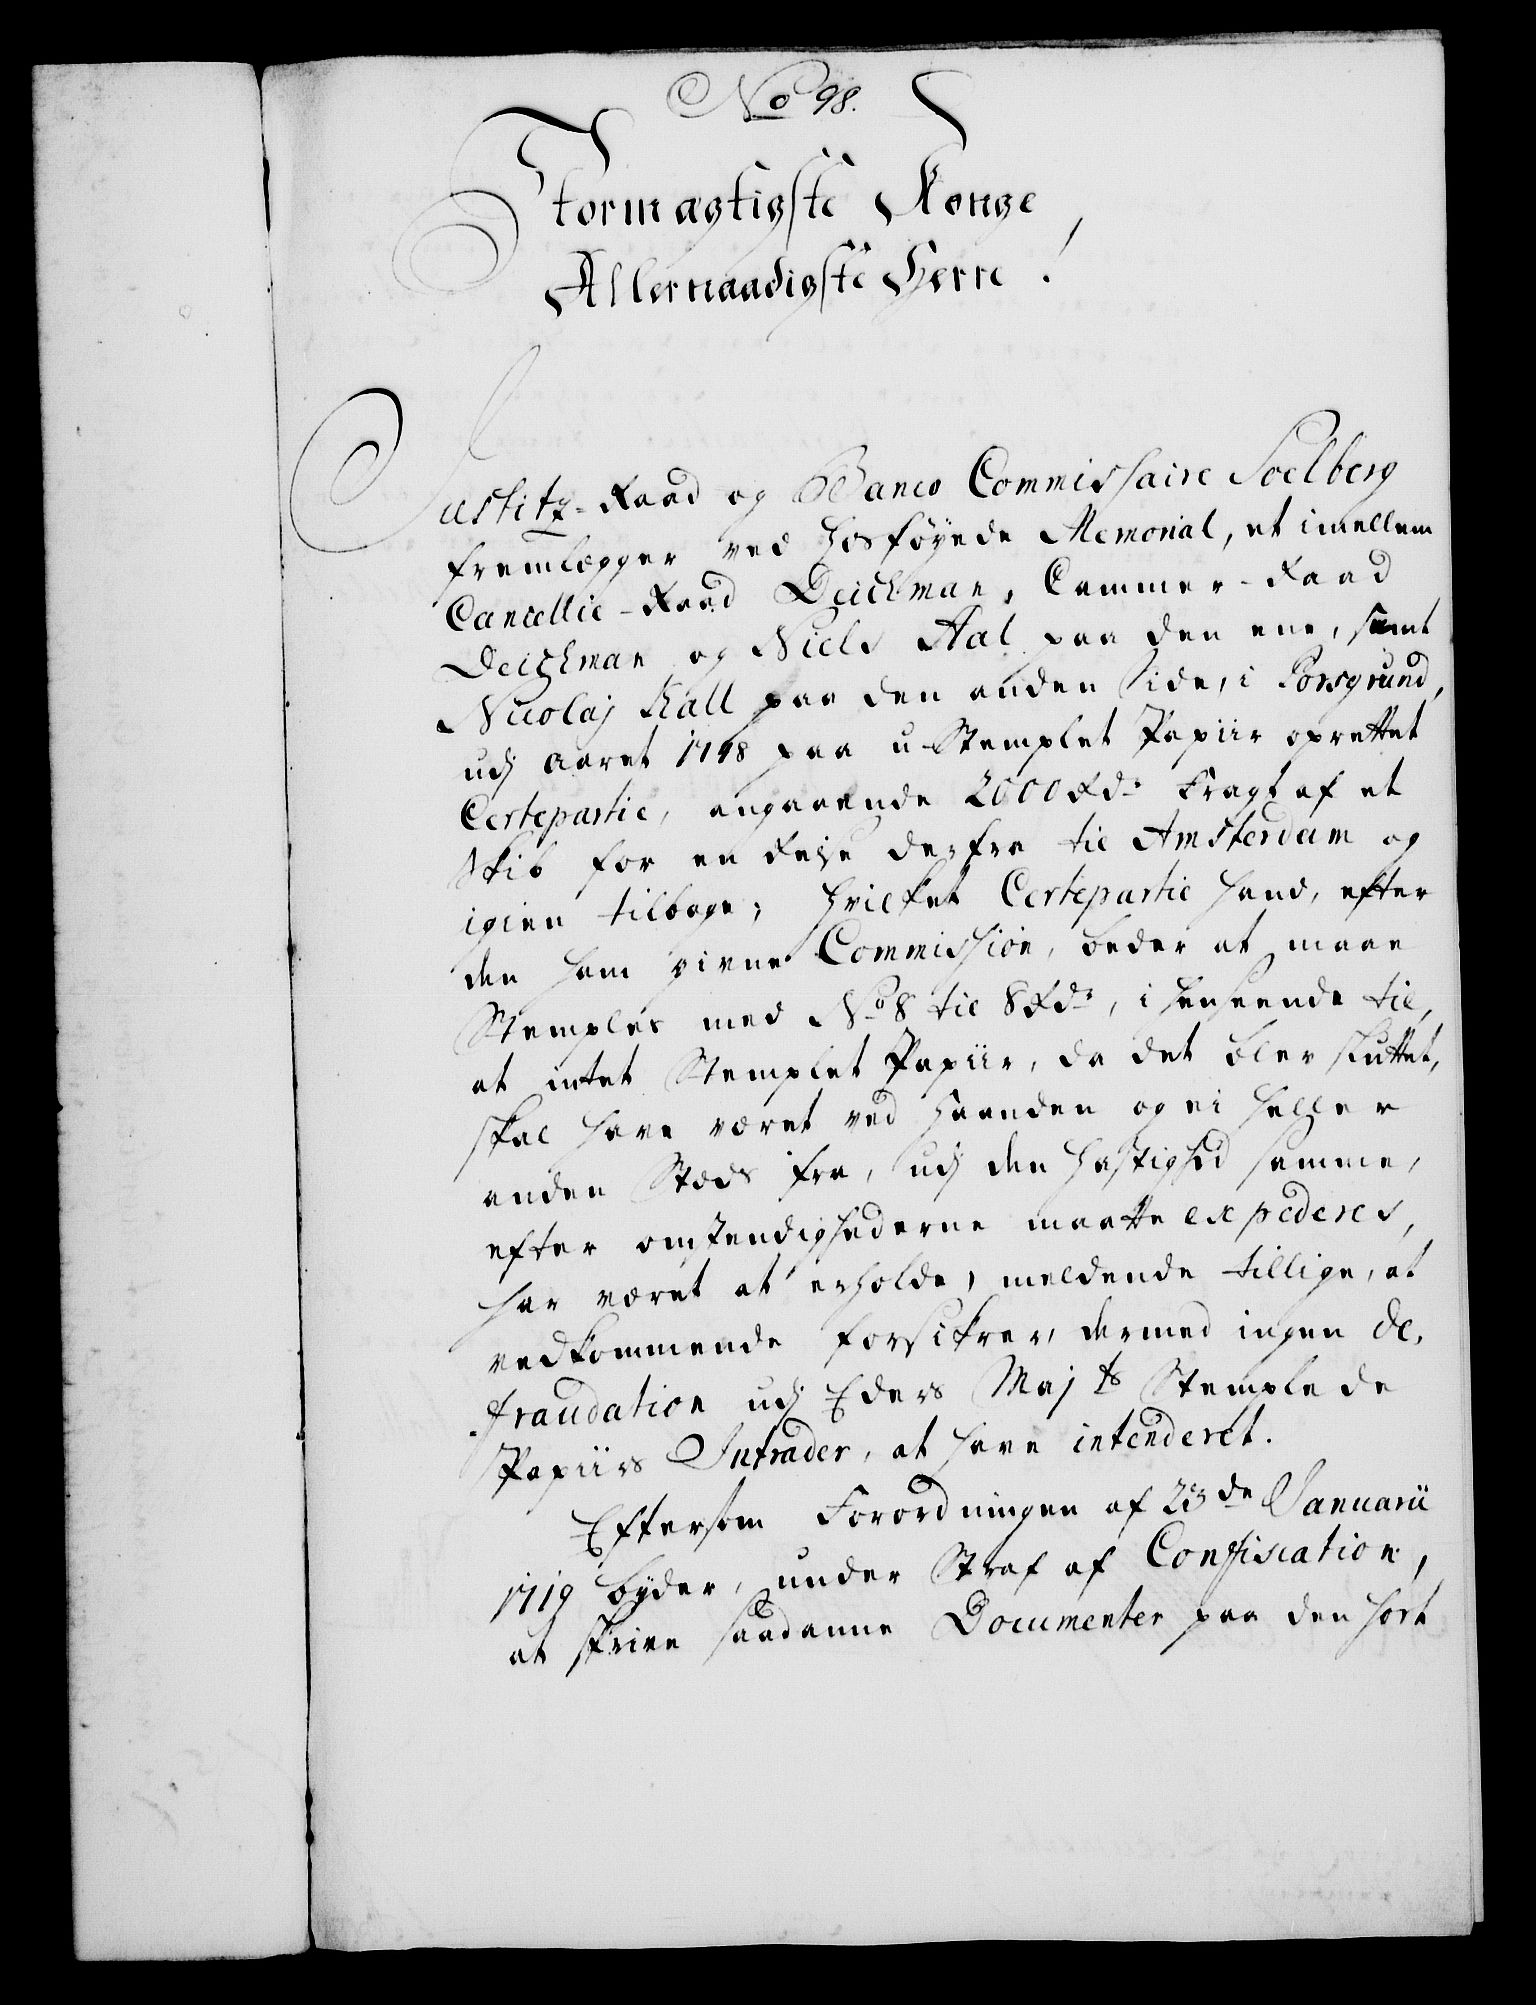 No 98.
Stormægtigste Konge,
Allernaadigste Herre!
Justitz-Raad og Banco Commissaire Soelberg
fremlægger ved hosføyede Memorial, et imellem
Cancellie-Raad Deichman, Cammer-Raad
Deichman og Niels Aal paa den ene, samt
Nicolaj Kall paa den anden Side, i Porsgrund,
udj Aaret 1748 paa u-Stemplet Papiir oprettet
Certepartie, angaaende 2000 Rdr Fragt af et
Skib for en Reise derfra til Amsterdam og
igien tilbage; hvilket Certepartie hand, efter
den ham givne Commission, beder at maae
Stemples med No 8 til 8 Rdr, i henseende til,
at intet Stemplet Papiir, da det blev sluttet,
skal have været ved Haanden og ei heller
anden Stæds fra, udj den Hastighed samme,
efter omstendighederne maatte expederes,
har været at erholde, meldende tillige, at
vedkommende forsikrer, dermed ingen De-
fraudation udj Eders Majts Stemplede
Papiirs Intrader, at have intenderet.
Eftersom Forordningen af 23de Januarii
1719 byder, under Straf af Confiscation,
at skrive saadanne Documenter paa den sort